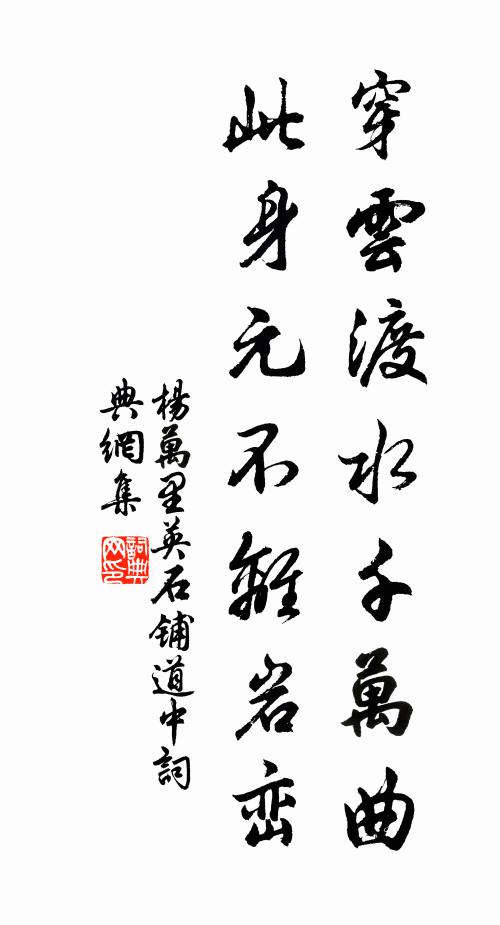 穿雲渡水千萬曲
此身元不離岩峦
楊萬里英石鋪道中詞
典網集
詞典
网印